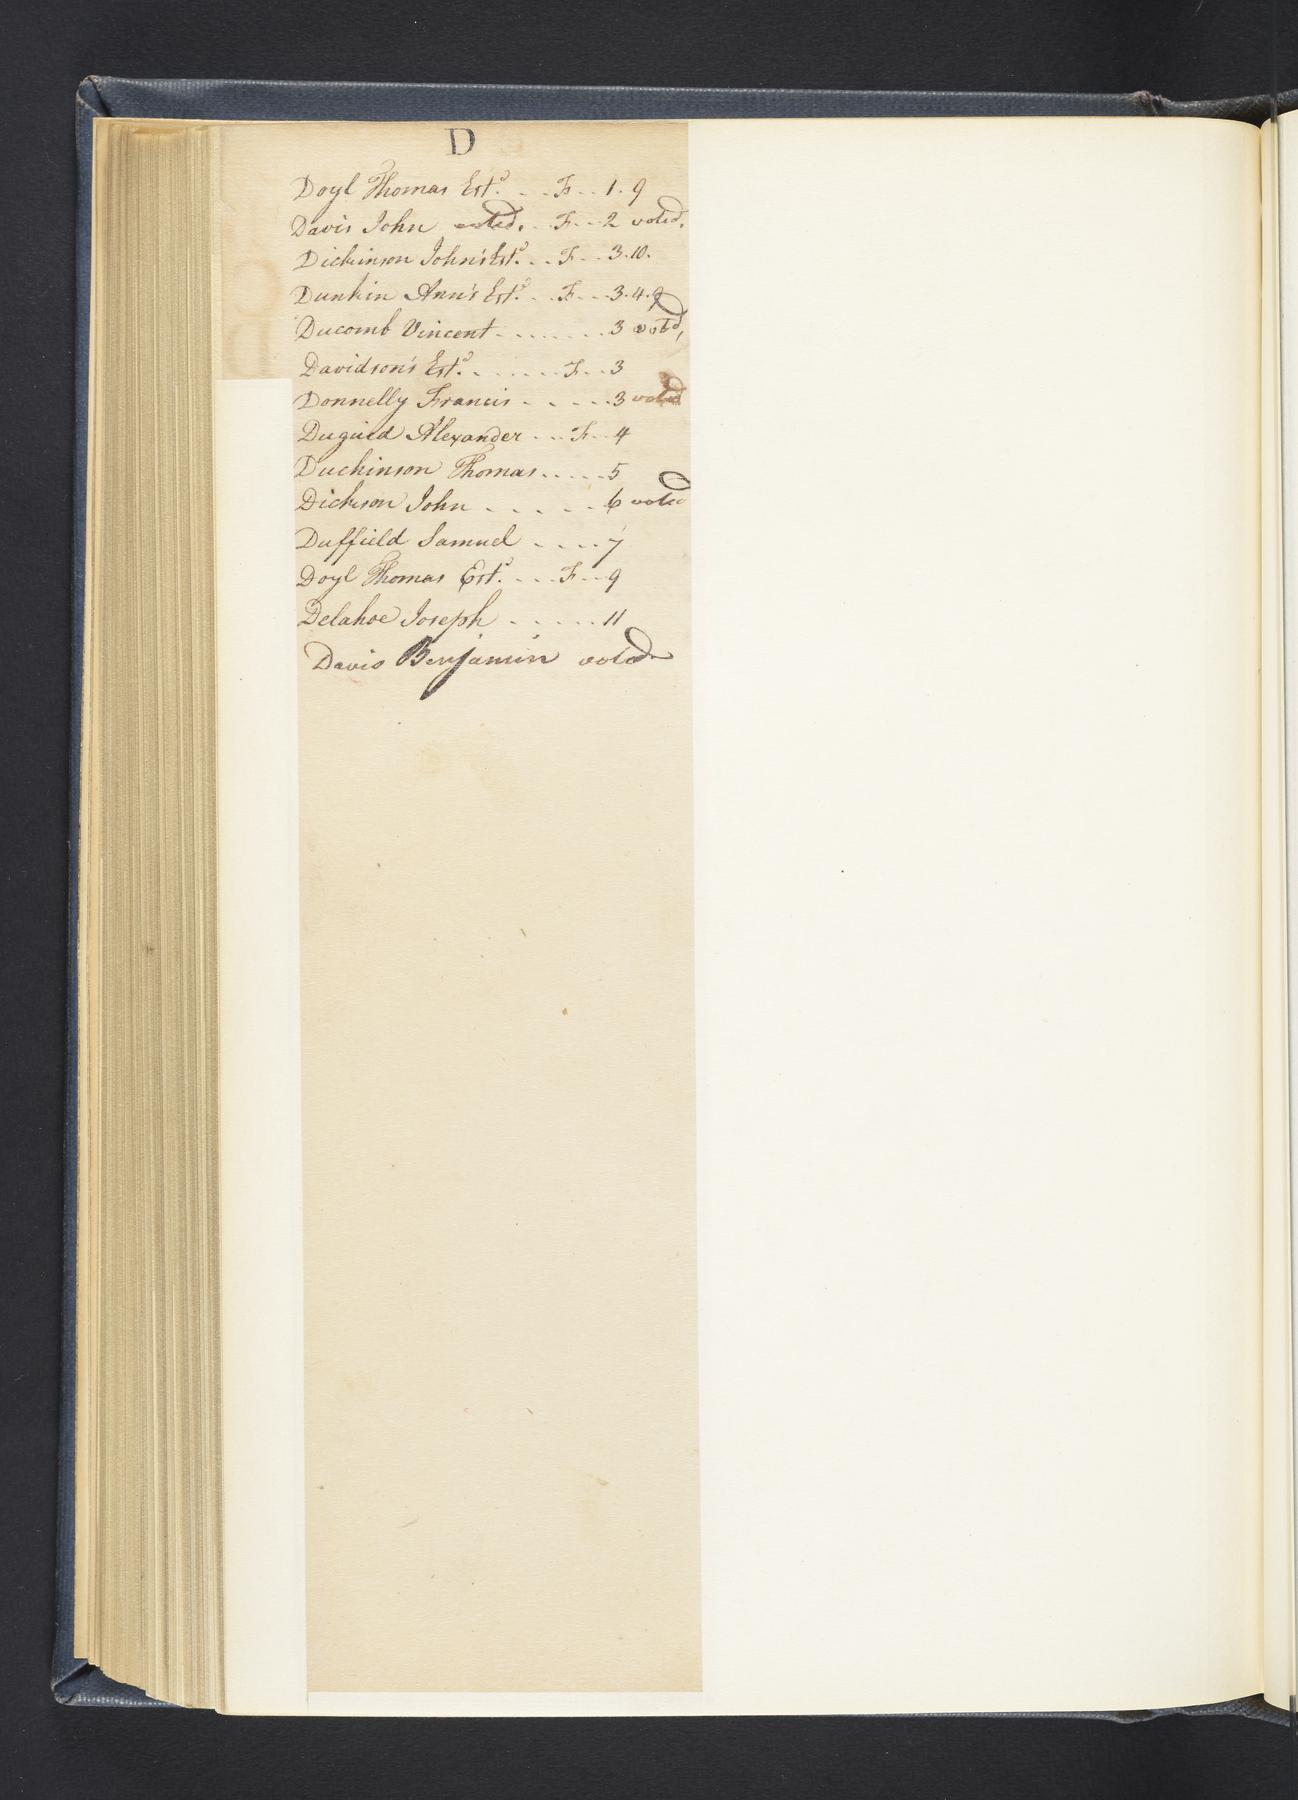 D
Doyl Thomas Est.d . . . F . . 1 . 9
Davis John voted, . . F . . . 2 voted,
Dickinson John's Est.d . . . F . . . 3 . 10 .
Dunkin Ann's Est.d . . . F . . . 3 . 4 . 9
Ducomb Vincent . . . . . . . . 3 voted,
Davidson's Est.d . . . . . . . F . . 3
Donnelly Francis . . . . . . 3 voted
Duguid Alexander . . . F . . 4
Duchinson Thomas . . . . . 5
Dickson John . . . . . . 6 voted
Duffield Samuel . . . . 7
Doyl Thomas Est.d . . . . F . . 9
Delahoe Joseph . . . . . . 11
Davis Benjamin voted